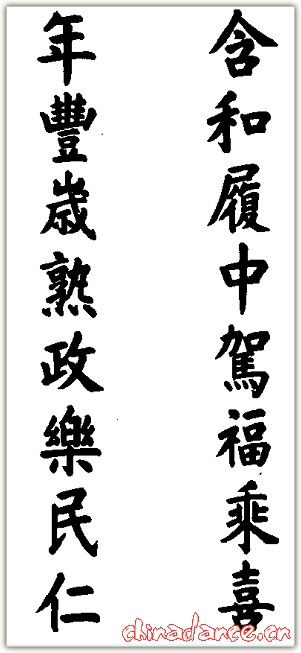 含和履中駕福乘喜
年豐歲熟政樂民仁
chinadance.cn